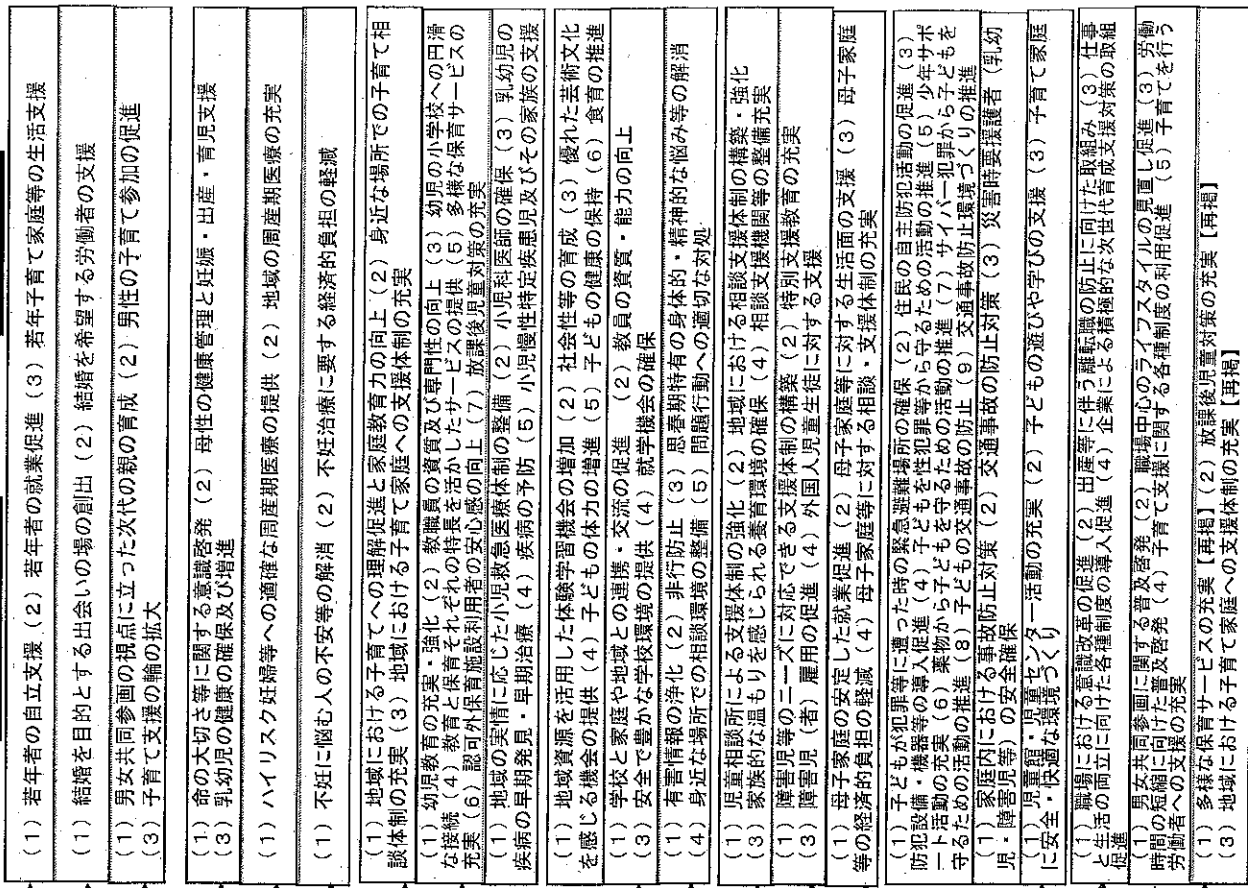 (1) 若年者の自立支援 (2) 若年者の就業促進 (3) 若年子育て家庭等の生活支援
(1) 結婚を目的とする出会いの場の創出 (2) 結婚を希望する労働者の支援
(1) 男女共同参画の視点に立った次代の親の育成 (2) 男性の子育て参加の促進
(3) 子育て支援の輪の拡大
(1) 命の大切さ等に関する意識啓発 (2) 母性の健康管理と妊娠・出産・育児支援
(3) 乳幼児の健康の確保及び増進
(1) ハイリスク妊婦等への適確な周産期医療の提供 (2) 地域の周産期医療の充実
(1) 不妊に悩む人の不安等の解消 (2) 不妊治療に要する経済的負担の軽減
(1) 地域における子育てへの理解促進と家庭教育力の向上 (2) 身近な場所での子育て相
談体制の充実 (3) 地域における子育て家庭への支援体制の充実
(1) 幼児教育の充実・強化 (2) 教職員の資質及び専門性の向上 (3) 幼児の小学校への円滑
な接続 (4) 教育と保育それぞれの特長を活かしたサービスの提供 (5) 多様な保育サービスの
充実 (6) 認可外保育施設利用者の安心感の向上 (7) 放課後児童対策の充実
(1) 地域の実情に応じた小児救急医療体制の整備 (2) 小児科医師の確保 (3) 乳幼児の
疾病の早期発見・早期治療 (4) 疾病の予防 (5) 小児慢性特定疾患児及びその家族の支援
(1) 地域資源を活用した体験学習機会の増加 (2) 社会性等の育成 (3) 優れた芸術文化
を感じる機会の提供 (4) 子どもの体力の増進 (5) 子どもの健康の保持 (6) 食育の推進
(1) 学校と家庭や地域との連携・交流の促進 (2) 教員の資質・能力の向上
(3) 安全で豊かな学校環境の提供 (4) 就学機会の確保
(1) 有害情報の浄化 (2) 非行防止 (3) 思春期特有の身体的・精神的な悩み等の解消
(4) 身近な場所での相談環境の整備 (5) 問題行動への適切な対処
(1) 児童相談所による支援体制の強化 (2) 地域における相談支援体制の構築・強化
(3) 家族的な温もりを感じられる養育環境の確保 (4) 相談支援機関等の整備充実
(1) 障害児等のニーズに対応できる支援体制の構築 (2) 特別支援教育の充実
(3) 障害児(者)雇用の促進 (4) 外国人児童生徒に対する支援
(1) 母子家庭の安定した就業促進 (2) 母子家庭等に対する生活面の支援 (3) 母子家庭
等の経済的負担の軽減 (4) 母子家庭等に対する相談・支援体制の充実
(1) 子どもが犯罪等に遭った時の緊急避難場所の確保 (2) 住民の自主防犯活動の促進 (3)
防犯設備・機器等の導入促進 (4) 子どもを性犯罪等から守るための活動の推進 (5) 少年サポ
ート活動の充実 (6) 薬物から子どもを守るための活動の推進 (7) サイバー犯罪から子どもを
守るための活動の推進 (8) 子どもの交通事故の防止 (9) 交通事故防止環境づくりの推進
(1) 家庭内における事故防止対策 (2) 交通事故の防止対策 (3) 災害時要援護者(乳幼
児・障害児等)の安全確保
(1) 児童館・児童センター活動の充実 (2) 子どもの遊びや学びの支援 (3) 子育て家庭
に安全・快適な環境づくり
(1) 職場における意識改革の促進 (2) 出産等に伴う離転職の防止に向けた取組み (3) 仕事
と生活の両立に向けた各種制度の導入促進 (4) 企業による積極的な次世代育成支援対策の取組
促進
(1) 男女共同参画に関する普及啓発 (2) 職場中心のライフスタイルの見直し促進 (3) 労働
時間の短縮に向けた普及啓発 (4) 子育て支援に関する各種制度の利用促進 (5) 子育てを行う
労働者への支援の充実
(1) 多様な保育サービスの充実【再掲】 (2) 放課後児童対策の充実【再掲】
(3) 地域における子育て家庭への支援体制の充実【再掲】